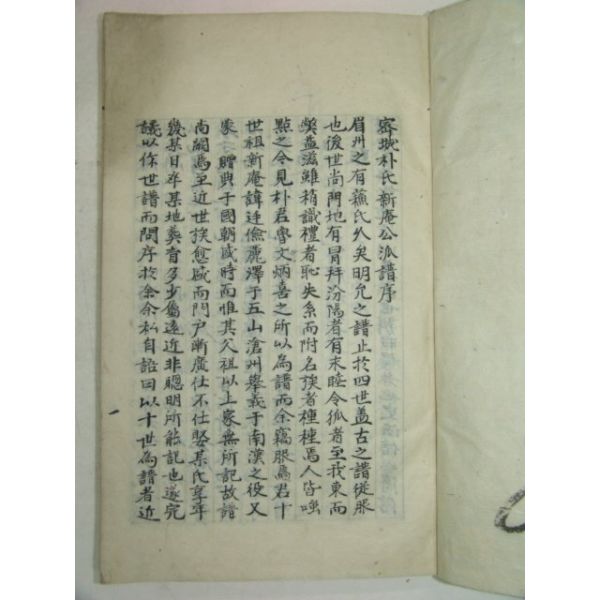 密城朴氏新庵公派譜序
眉州之有蘓氏久矣明允之譜止於四世盖古之譜從服
也後世尚門地有冒拜汾陽者有未睦令狐者至我東而
獘益滋雖稍識禮者恥失系而附名族者種種焉人皆嗤
點之今見朴君魯文炳喜之所以為譜而余竊服焉君十
世祖新庵諱廷儉麗澤于五山滄州擧義于南漢之役又
蒙贈典于國朝盛時而惟其父祖以上家無所記故譜
尚闕焉至近世族愈盛而門户漸廣仕不仕娶某氏享年
幾某日卒某地葬育多少屬遠近非聰明所能記也遂完
議以修世譜而問序於余余私自語曰以十世為譜者近